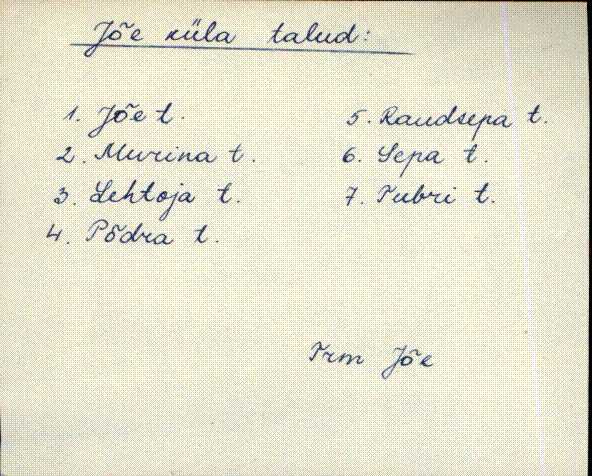 Jõe küla talud:
1. Jõe t.
2. Murina t.
3. Lehtoja t.
4. Põdra t.
5. Raudsepa t.
6. Sepa t.
7. Tubri t.
Trm Jõe